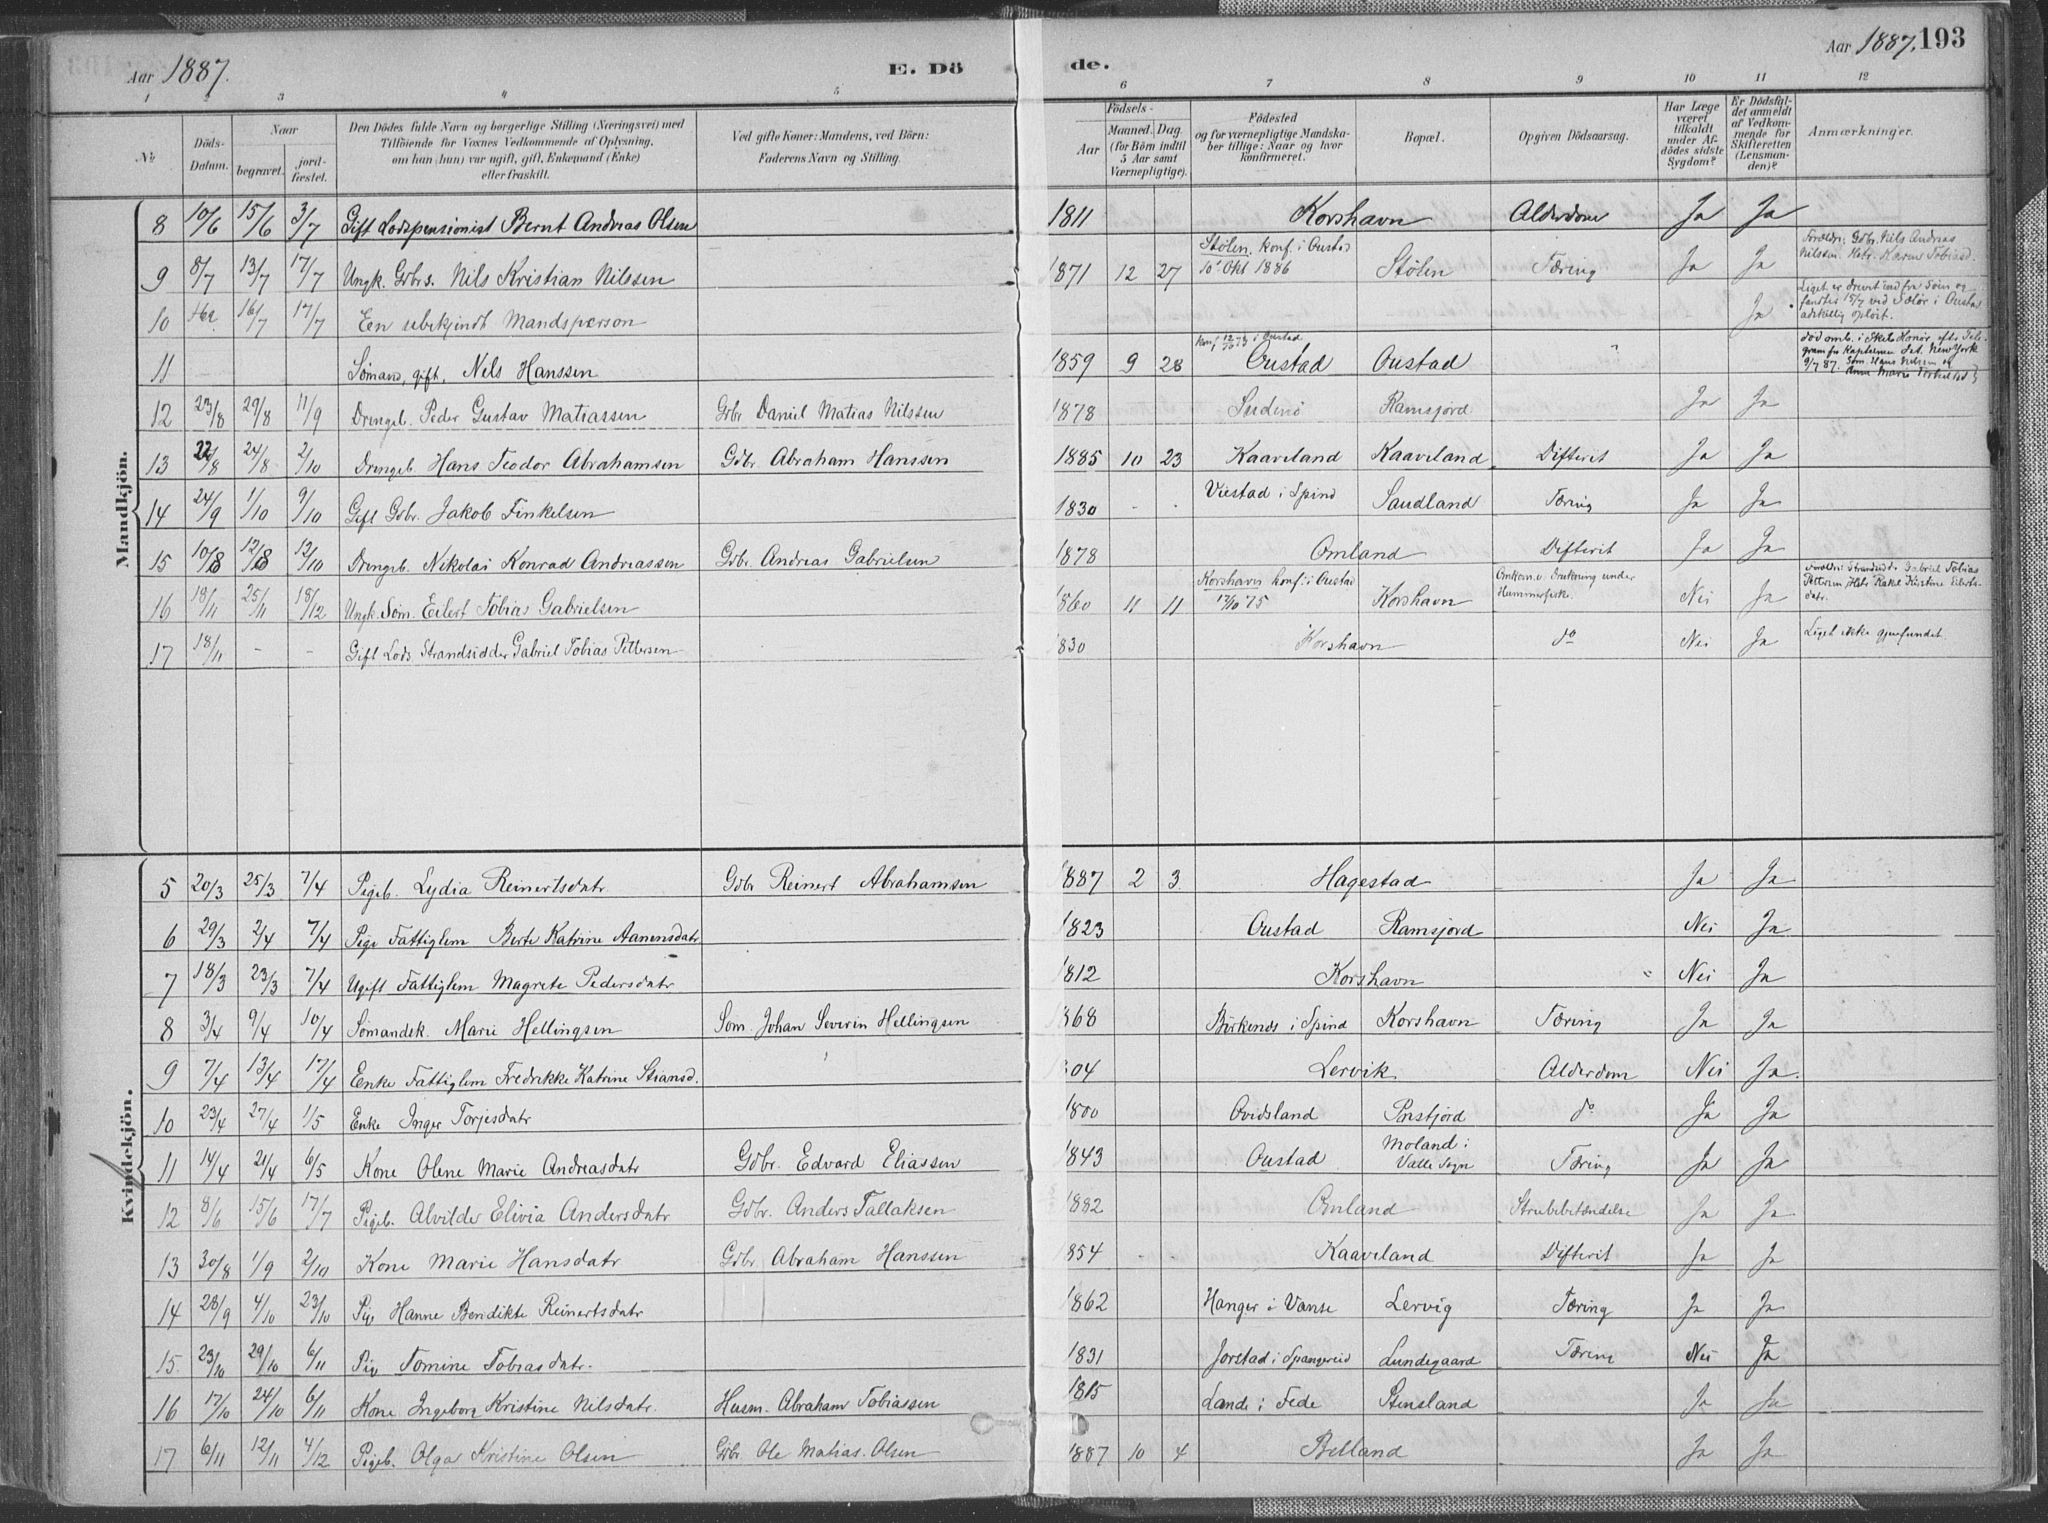 Aar 1887. E. Dö de. Aar 1887. 193
1 2 3 4 5 6 7 8 9 10 11 12
No
Döds-Datum.
Naar
begravet.
jord-fæstet.
Den Dödes fulde Navn og borgerlige Stilling (Næringsvei) med
Tilföiende for Voxnes Vedkommende af Oplysning,
om han (hun) var ugift, gift, Enkemand (Enke)
eller fraskilt.
Ved gifte Koner: Mandens, ved Börn:
Faderens Navn og Stilling.
Födsels-
Aar
Maaned. Dag.
(for Börn indtil
5 Aar samt
Værnepligtige).
Födested
og for værnepligtige Mandska-
ber tillige: Naar og hvor
konfirmeret.
Bopæl.
Opgiven Dödsaarsag.
Har Læge
været
tilkaldt
under Af-
dödes sidste
Sygdom?
Er Dödsfal-
det anmeldt
af Vedkom-
mende for
Skifteretten
(Lensman-
den)?
Anmærkninger.
Mandkjön.
8 10/6 15/6 3/7 Gift Lodspensionist Bernt Andreas Olsen 1811 Korshavn Alderdom Ja Ja
9 8/7 13/7 17/7 Ungk. Gdbrs. Nils Kristian Nilssen 1871 12 27 Stølen. konf. i Oustad 10' Okt 1886 Stølen Tæring Ja Ja Forældre: Gdbr. Nils Andreas Nilssen. Hstr. Karen Tobiasd.
10 16/7 17/7 En ubekjendt Mandsperson Ja Liget er drevet ind fra Søen og fandtes 15/7 ved i Oustad adskillig opløst.
11 Sømand, gift, Nels Hanssen 1859 9 28 konf 12/10 73 i Oustad Oustad Oustad " død omb. i Skib Honør efter Telegram fra Kapteinen dat. New York 9/7 87. Søm. Hans Nilssen og Anna Marie Torkelsd.
12 23/8 29/8 11/9 Drengeb. Peder Gustav Matiassen Gdbr Daniel Matias Nilssen 1878 Sudinø Ramsjord Ja Ja
13 22/8 24/8 2/10 Drengeb. Hans Teodor Abrahamsen Gdbr. Abraham Hanssen 1885 10 23 Kaaveland Kaaveland Difterit Ja Ja
14 24/9 1/10 9/10 Gift Gdbr. Jakob Finkelsen 1830 - - Viestad i Spind Saudland Tæring Ja Ja
15 10/8 12/8 12/10 Drengeb. Nikolai Konrad Andreassen Gdbr. Andreas Gabrielsen 1878 Omland Difterit Ja Ja
16 18/11 25/11 18/12 Ungk. Søm. Eilert Tobias Gabrielsen 1860 11 11 Korshavn konf: i Oustad 17/10 75 Korshavn Omkom. v. Drukning under Hummerfiske. Nei Ja Forældre: Strandsidd. Gabriel Tobias Pettersen Hstr Rakel Kristine Eilertsdatr.
17 18/11 - - Gift Lods Strandsidder Gabriel Tobias Pettersen 1830 Korshavn do Nei Ja Liget ikke gjenfundet.
Kvindekjön.
5 20/3 25/3 7/4 Pigeb. Lydia Reinertsdatr Gdbr Reinert Abrahamsen 1887 2 3 Hagestad Ja Ja
6 29/3 2/4 7/4 Pige Fattiglem Berte Katrine Aanensdatr 1823 Oustad Ramsjord Nei Ja
7 18/3 23/3 7/4 Ugift Fattiglem Magrete Pedersdatr 1812 Korshavn " Nei Ja
8 3/4 9/4 10/4 Sømandsk. Marie Hellingsen Søm. Johan Severin Hellingsen 1868 Birkenes i Spind Korshavn Tæring Ja Ja
9 7/4 13/4 17/4 Enke Fattiglem Fredrikke Katrine Stiansd. 1804 Lervik Alderdom Nei Ja.
10 23/4 27/4 1/5 Enke Inger Torjesdatr 1800 Ovidsland Prestjord do Ja Ja
11 14/4 21/4 6/5 Kone Olene Marie Andreasdatr Gdbr. Edvard Eliassen 1843 Oustad Moland i Valle Sogn Tæring Ja Ja
12 8/6 15/6 17/7 Pigeb. Alvilde Elivia Andersdatr Gdbr. Anders Tallaksen 1882 Omland Strubebetændelse Ja Ja
13 30/8 1/9 2/10 Kone Marie Hansdatr Gdbr Abraham Hanssen 1854 - - Kaaveland Difterit Ja Ja
14 28/9 4/10 23/10 Pige Hanne Bendikte Reinertsdatr 1862 Hanger i Vanse Lervig Tæring Ja Ja
15 23/10 29/10 6/11 Pige Tomine Tobiasdatr. 1831 Jorstad i Spangereid Lundegaard Tæring Nei Ja
16 17/10 24/10 6/11 Kone Ingeborg Kristine Nilsdatr. Husm. Abraham Tobiassen 1815 Lande i Fede Stensland Ja Ja
17 6/11 12/11 4/12 Pigeb. Olga Kristine Olsen Gdbr Ole Matias Olsen 1887 10 4 Betland Ja Ja